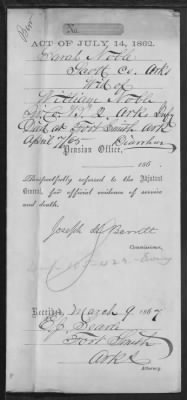 No.
ACT OF JULY 14, 1862.
Sarah Noble
Scott Co. Arks
Wid of
William Noble
Co. B, 2 Arks Infy
Died at Fort Smith Ark
April 7/65 Diarrhea
Pension Office,
186 .
Respectfully referred to the Adjutant
General, for official evidence of service
and death.
Joseph H Barrett
Commissioner.
Received, March 9, 1867
Fort Smith
Arks
Attorney.